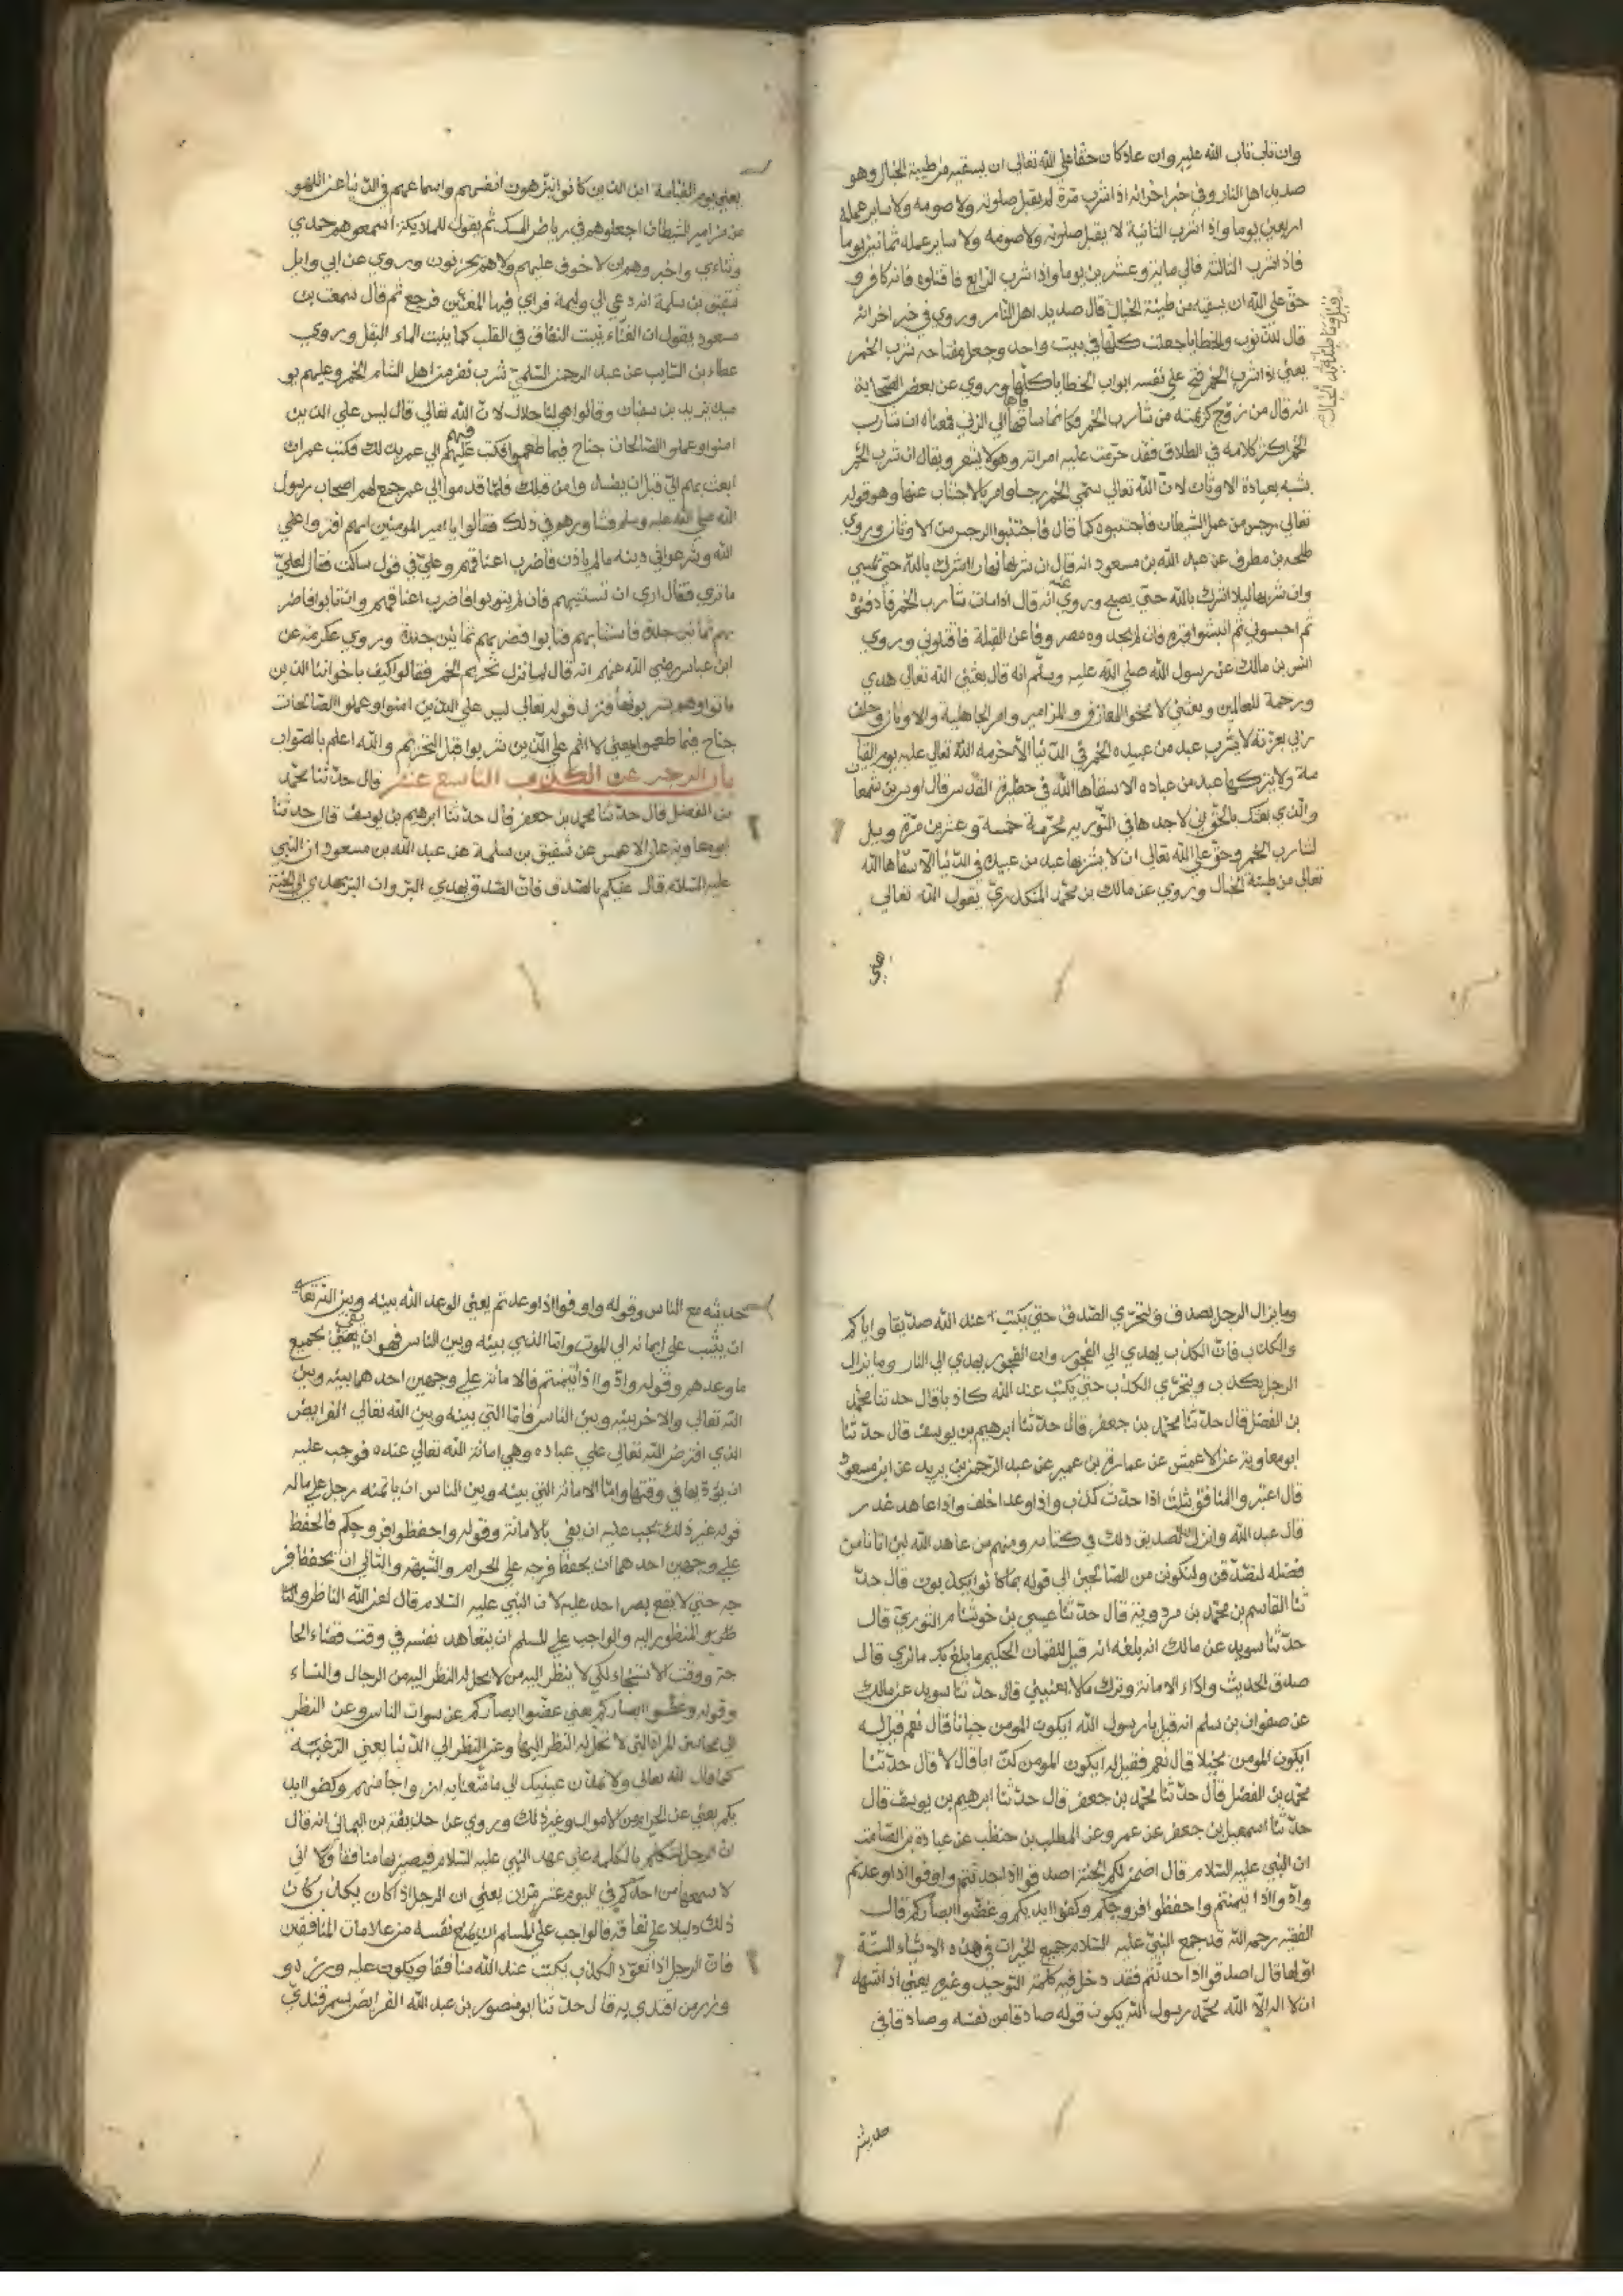 وان تاب تاب الله عليه وان عاد كان حقا علي الله تعالي ان يسقيه من طينة الخبال وهو
صديد اهل النار وفي خبر اخر انه اذا شرب مرة لم يقبل صلوته ولا صومه ولا ساير عمله
اربعين يوما واذا شرب الثانية لا يقبل صلوته ولا صومه ولا ساير عمله ثمانين يوما
فاذا شرب الثالثة فالي مائة وعشرين يوما واذا شرب الرابع فاقتلوه فانه كافر و
حق علي الله ان يسقيه من طينة الخبال قال صديد اهل النار وروي في خبر اخر انه
قال الذنوب والخطايا جعلت كلها في بيت واحد وجعل مفتاحه شرب الخمر
يعني اذا شرب الخمر فتح علي نفسه ابواب الخطايا كلها وروي عن بعض الصحابة
انه قال من زوج كريمته من شارب الخمر فكانما ساقها الي الزني فمعناه ان شارب
الخمر اكثر كلامه في الطلاق فقد حرمت عليه امراته وهو لا يشعر ويقال ان شرب الخمر
يشبه بعبادة الاوثان لان الله تعالي سمي الخمر رجسا وامر بالاجتناب عنها وهو قوله
تعالي رجس من عمل الشيطان فاجتنبوه كما قال فاجتنبوا الرجس من الاوثان وروي
طلحه بن مطرف عن عبد الله بن مسعود انه قال ان شربها نهارا اشرك بالله حتي يمسي
وان شربها ليلا اشرك بالله حتي يصبح وروي عنه انه قال اذا مات شارب الخمر فادفنوه
ثم احبسوني ثم انبشوا قبره فان لم تجدوه مصروفا عن القبلة فاقتلوني وروي
انس بن مالك عن رسول الله صلي الله عليه وسلم انه قال بعثني الله تعالي هدي
ورحمة للعالمين وبعثني لا محو المعازف والمزامير وامر الجاهلية والاوثان وحلف
ربي بعزته لا يشرب عبد من عبيده الخمر في الدنيا الا حرمه الله تعالي عليه يوم القيا
مة ولا يتركها عبد من عباده الا سقاها الله في حظيرة القدس قال اوس بن سمعا
والذي بعثك بالحق اني لاجدها في التورية محرمة خمسة وعشرين مرة ويل
لشارب الخمر وحق علي الله تعالي ان لا يشربها عبد من عبيده في الدنيا الا سقاها الله
تعالي من طينة الخبال وروي عن مالك بن محمد المنكدري يقول الله تعالي
يعني
يعني يوم القيامة اين الذين كانوا ينزهون انفسهم واسماعهم في الدنيا عن اللهو
عن مزامير الشيطان اجعلوهم في رياض المسك ثم يقول للملايكة اسمعوهم حمدي
وثناءي واخبروهم ان لا خوف عليهم ولا هم يحزنون وروي عن ابي وايل
شقيق بن سلمة انه دعي الي وليمة فراي فيها المغنين فرجع ثم قال سمعت بن
مسعود يقول ان الغناء ينبت النفاق في القلب كما ينبت الماء البقل وروي
عطاء بن السايب عن عبد الرحمن السلمي شرب نفر من اهل الشام الخمر وعليهم يو
ميذ يزيد بن سفيان وقالوا هي لنا حلال لان الله تعالي قال ليس علي الذين
امنوا وعملوا الصالحات جناح فيما طعموا فكتب فيهم الي عمر بذلك فكتب عمر ان
ابعث بهم الي قبل ان يفسدوا من قبلك فلما قدموا الي عمر جمع لهم اصحاب رسول
الله صلي الله عليه وسلم وشاورهم في ذلك فقالوا يا امير المومنين انهم افتروا علي
الله وشرعوا في دينه ما لم ياذن فاضرب اعناقهم وعلي في قول ساكت فقال لعلي
ما تري فقال اري ان تستتيبهم فان لم يتوبوا فاضرب اعناقهم وان تابوا فاضر
بهم ثمانين جلدة فاستتابهم فتابوا فضربهم ثمانين جلدة وروي عكرمة عن
ابن عباس رضي الله عنهم انه قال لما نزل تحريم الخمر فقالوا كيف باخواننا الذين
ماتوا وهم يشربونها فنزل قوله تعالي ليس علي الذين امنوا وعملوا الصالحات
جناح فيما طعموا يعني لا اثم علي الذين شربوا قبل التحريم والله اعلم بالصواب
باب الزجر عن الكذب التاسع عشر قال حدثنا محمد
بن الفضل قال حدثنا محمد بن جعفر قال حدثنا ابرهيم بن يوسف قال حدثنا
ابو معاوية عن الاعمش عن شقيق بن سلمة عن عبد الله بن مسعود ان النبي
عليه السلام قال عليكم بالصدق فان الصدق يهدي البر وان البر يهدي الي الجنة
وما يزال الرجل يصدق ويتحري الصدق حتي يكتب عند الله صديقا واياكم
والكذب فان الكذب يهدي الي الفجور وان الفجور يهدي الي النار وما يزال
الرجل يكذب ويتحري الكذب حتي يكتب عند الله كاذبا قال حدثنا محمد
بن الفضل قال حدثنا محمد بن جعفر قال حدثنا ابرهيم بن يوسف قال حدثنا
ابو معاوية عن الاعمش عن عمارة بن عمير عن عبد الرحمن بن يزيد عن ابن مسعود
قال اعتبروا المنافق بثلث اذا حدث كذب واذا وعد اخلف واذا عاهد غدر
قال عبد الله وانزل الله تصديق ذلك في كتابه ومنهم من عاهد الله لئن اتانا من
فضله لنصدقن ولنكونن من الصالحين الي قوله بما كانوا يكذبون قال حد
ثنا القاسم بن محمد بن مردوية قال حدثنا عيسي بن خوشنام النوري قال
حدثنا سويد عن مالك انه بلغه انه قيل للقمان الحكيم ما بلغ بك ما نري قال
صدق الحديث واداء الامانة وترك ما لا يعنيني قال حدثنا سويد عن مالك
عن صفوان بن سلم انه قيل يا رسول الله ايكون المومن جبانا قال نعم قيل له
ايكون المومن بخيلا قال نعم فقيل له ايكون المومن كذابا قال لا قال حدثنا
محمد بن الفضل قال حدثنا محمد بن جعفر قال حدثنا ابرهيم بن يوسف قال
حدثنا اسمعيل بن جعفر عن عمرو عن المطلب بن حنطب عن عبادة بن الصامت
ان النبي عليه السلام قال اضمن لكم الجنة اصدقوا اذا حدثتم واوفوا اذا وعدتم
وادوا اذا ائتمنتم واحفظوا فروجكم وكفوا ايديكم وغضوا ابصاركم قال
الفقيه رحمه الله قد جمع النبي عليه السلام جميع الخيرات في هذه الاشياء الستة
اولها قال اصدقوا اذا حدثتم فقد دخل فيه كلمة التوحيد وغيره يعني اذا شهد
ان لا اله الا الله محمد رسول الله يكون قوله صادقا من نفسه وصادقا في
حديثه
حديثه مع الناس وقوله واوفوا اذا وعدتم يعني الوعد الله بينه وبين الله تعالي
ان يثبت علي ايمانه الي الموت واما الذي بينه وبين الناس فهو ان يفي بجميع
ما وعدهم وقوله وادوا اذا ائتمنتم فالامانة علي وجهين احدهما بينه وبين
الله تعالي والاخر بينه وبين الناس فاما التي بينه وبين الله تعالي الفرايض
الذي افترض الله تعالي علي عباده وهي امانة الله تعالي عنده فوجب عليه
ان يؤديها في وقتها واما الامانة التي بينه وبين الناس ان ياتمنه رجل علي ماله
قوله غير ذلك يجب عليه ان يفي بالامانة وقوله واحفظوا فروجكم فالحفظ
علي وجهين احدهما ان يحفظ فرجه علي الحرام والشبهة والثاني ان يحفظ فر
جه حتي لا يقع بصر احد عليه لان النبي عليه السلام قال لعن الله الناظر
والمنظور اليه والواجب علي المسلم ان يتعاهد نفسه في وقت قضاء الحا
جة ووقت الاستنجاء لكي لا ينظر اليه من لا يحل له النظر اليه من الرجال والنساء
وقوله وغضوا ابصاركم يعني غضوا ابصاركم عن سوات الناس وعن النظر
الي محاسن المراة التي لا تحل له النظر اليها وعن النظر الي الدنيا يعني الرغبة
كما قال الله تعالي ولا تمدن عينيك الي ما متعنا به ازواجا منهم وكفوا ايد
يكم يعني عن الحرام من الاموال وغير ذلك وروي عن حذيفة بن اليماني انه قال
ان الرجل ليتكلم بالكلمة علي عهد النبي عليه السلام فيصير بها منافقا ولا اني
لا سمعها من احدكم في اليوم عشر مران يعني ان الرجل اذا كان يكذب كان
ذلك دليلا علي نفاقه فالواجب علي المسلم ان يمنع نفسه من علامات المنافقين
فان الرجل اذا تعود الكذب يكتب عند الله منافقا ويكون عليه وزره و
وزر من اقتدي به قال حدثنا ابو منصور بن عبد الله الفرايض سمرقندي